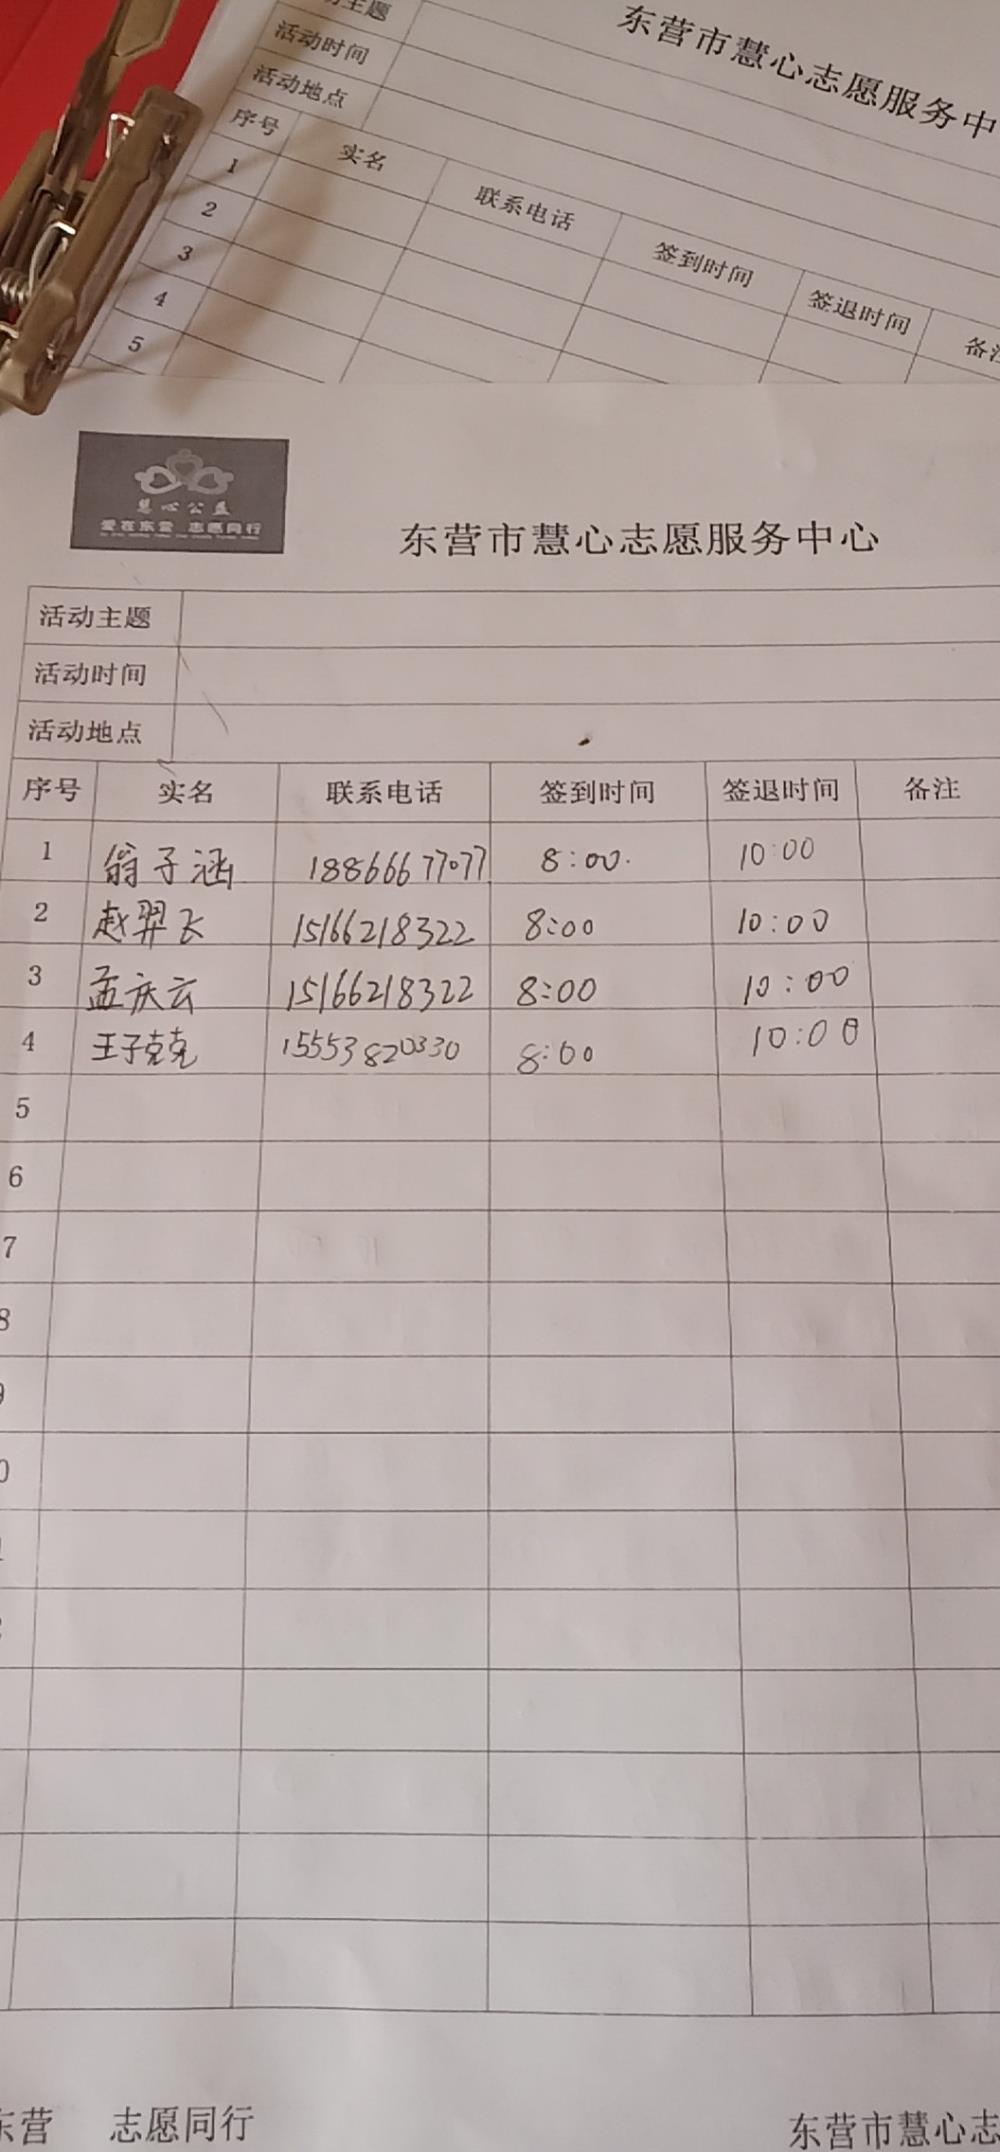 主题
东营市慧心志愿服务中
活动时间
活动地点
序号 实名 联系电话 签到时间 签退时间 备注
1
2
3
4
5
慧心公益
爱在东营 志愿同行
东营市慧心志愿服务中心
活动主题
活动时间
活动地点
序号 实名 联系电话 签到时间 签退时间 备注
1 翁子涵 18866677077 8:00. 10:00
2 赵羿飞 15166218322 8:00 10:00
3 孟庆云 15166218322 8:00 10:00
4 王子克克 15553820330 8:00 10:00
5
6
7
8
9
0
东营 志愿同行 东营市慧心志